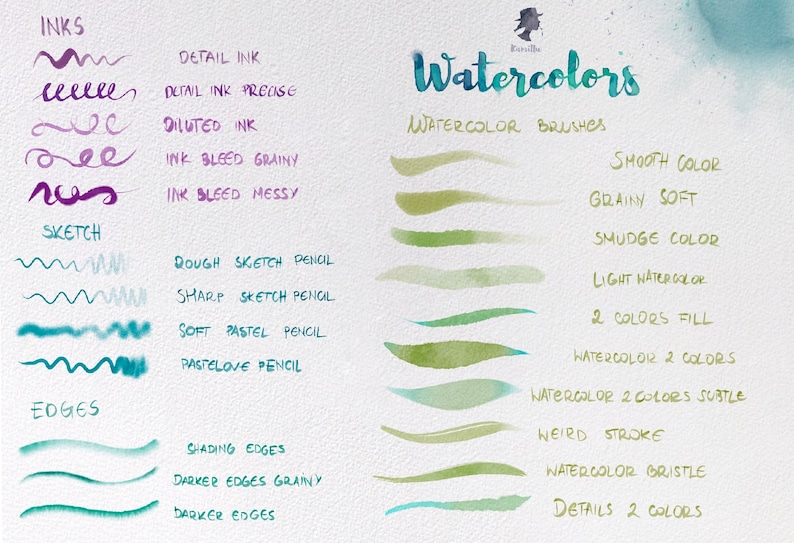 INKS
DETAIL INK
DETAIL INK PRECISE
DILUTED INK
INK BLEED GRAINY
INK BLEED MESSY
SKETCH
ROUGH SKETCH PENCIL
SHARP SKETCH PENCIL
SOFT PASTEL PENCIL
PASTELOVE PENCIL
EDGES
SHADING EDGES
DARKER EDGES GRAINY
DARKER EDGES
Kamilla
Watercolors
WATERCOLOR BRUSHES
SMOOTH COLOR
GRAINY SOFT
SMUDGE COLOR
LIGHT WATERCOLOR
2 COLORS FILL
WATERCOLOR 2 COLORS
WATERCOLOR 2 COLORS SUBTLE
WEIRD STROKE
WATERCOLOR BRISTLE
DETAILS 2 COLORS